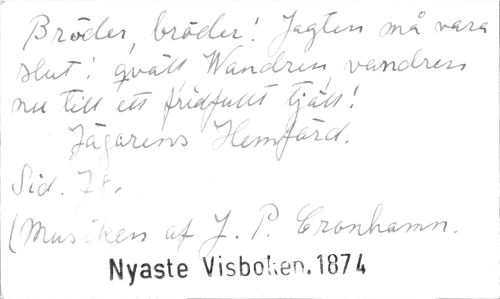 Bröder, bröder! Jagten må vara
slut i qväll, Wandren, vandren
nu till ett fridfullt tjäll!
Jägarens Hemfärd.
Sid. 78.
(Musiken af J. P. Cronhamn.
Nyaste Visboken. 1874